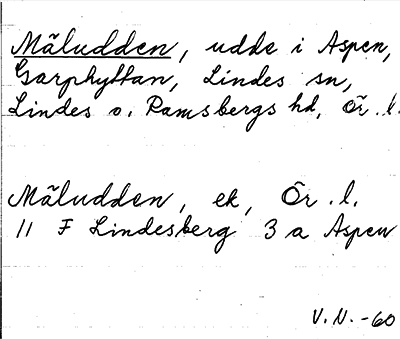 Mäludden, udde i Aspen,
Garphyttan, Lindes sn,
Lindes o. Ramsbergs hd, Ör. l.
Mäludden, ek, Ör. l.
11 F Lindesberg 3 a Aspen
V. N. -60